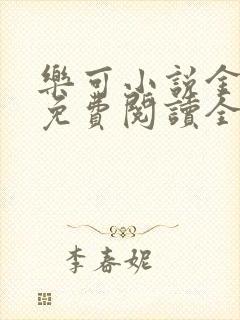 樂可小說金
免費閱讀全
李春妮